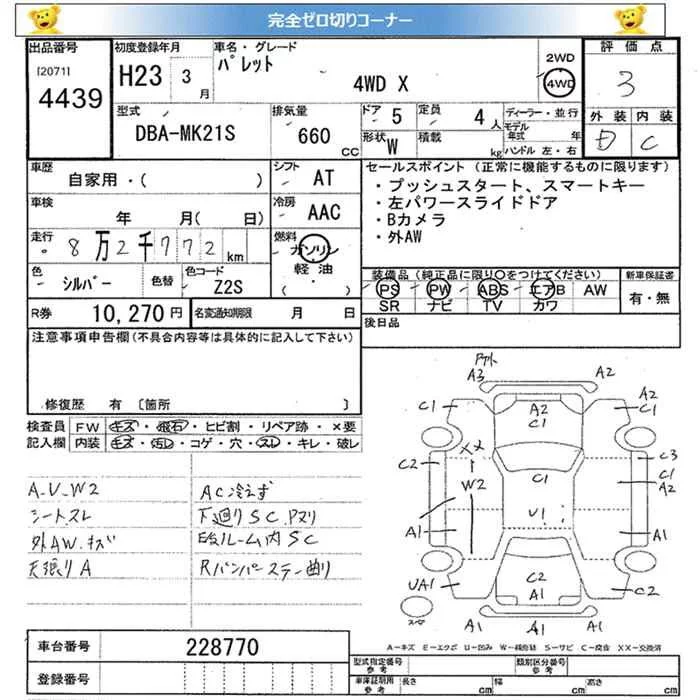 完全ゼロ切りコーナー
出品番号
[2071]
4439
初度登録年月
H23 3 月
車名・グレード
パレット
4WD X
2WD
4WD
評価点
3
型式
DBA-MK21S
排気量
660 CC
ドア 5
定員 4 人
形状 W
積載 kg
ディーラー・並行
モデル年式 年
ハンドル 左・右
外装 内装
D C
車歴
自家用・( )
シフト AT
車検
年 月( 日)
冷房 AAC
走行
8万2千772km
燃料
ガソリン
軽油
( ・ )
色 シルバー
色替
色コード Z2S
セールスポイント (正常に機能するものに限ります)
・プッシュスタート、スマートキー
・左パワースライドドア
・Bカメラ
・外AW
装備品(純正品に限り○をつけてください)
PS PW ABS エアB AW
SR ナビ TV カワ
新車保証書
有・無
R券 10,270円
名変通知期限 月 日
後日品
注意事項申告欄(不具合内容等は具体的に記入して下さい)
修復歴 有 〔箇所 〕
検査員記入欄
FW キズ・飛石・ヒビ割・リペア跡・×要
内装 キズ・汚レ・コゲ・穴・スレ・キレ・破レ
A.U.W2
シートスレ
外AW.キズ
天張りA
AC冷えず
下廻りSC.Pヌリ
E/gルーム内SC
Rバンパーステー曲り
A3 A2
C1 A2 C1 A2 C1
C2 W2 C1 C3 C1 A2
U1
A1 A1
UA1 C2 A1 C2
A1 A1 A1
スペア
A-キズ E-エクボ U-凹み W-補修跡 S-サビ C-腐食 XX-交換済
車台番号 228770
登録番号
型式指定番号 参考
類別区分番号 参考
車庫証明用 参考
長さ cm 幅 cm 高さ cm